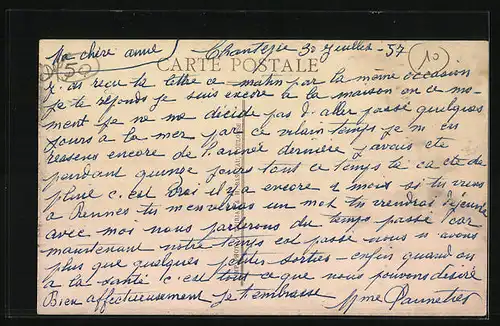 Ma chère anne Chantepie 30 juillet - 57
CARTE POSTALE
50 10
j'ai reçu ta lettre ce matin par la même occasion
je te réponds je suis encore a la maison en ce mo-
ment je ne me décide pas d'aller passé quelques
jours a la mer par ce vilain temps je m en
ressens encore de l'année dernière j'avais été
pendant quinze jours tout ce temps là ca été de
pluie c'est vrai il y a encore 1 mois si tu viens
a Rennes tu m'enverras un mot tu viendras déjeuner
avec moi nous parlerons du temps passé car
maintenant notre temps est passé nous n avons
plus que quelques petites sorties - enfin quand on
a la santé c'est tout ce que nous pouvons désiré
Bien affectueusement je t'embrasse Mme